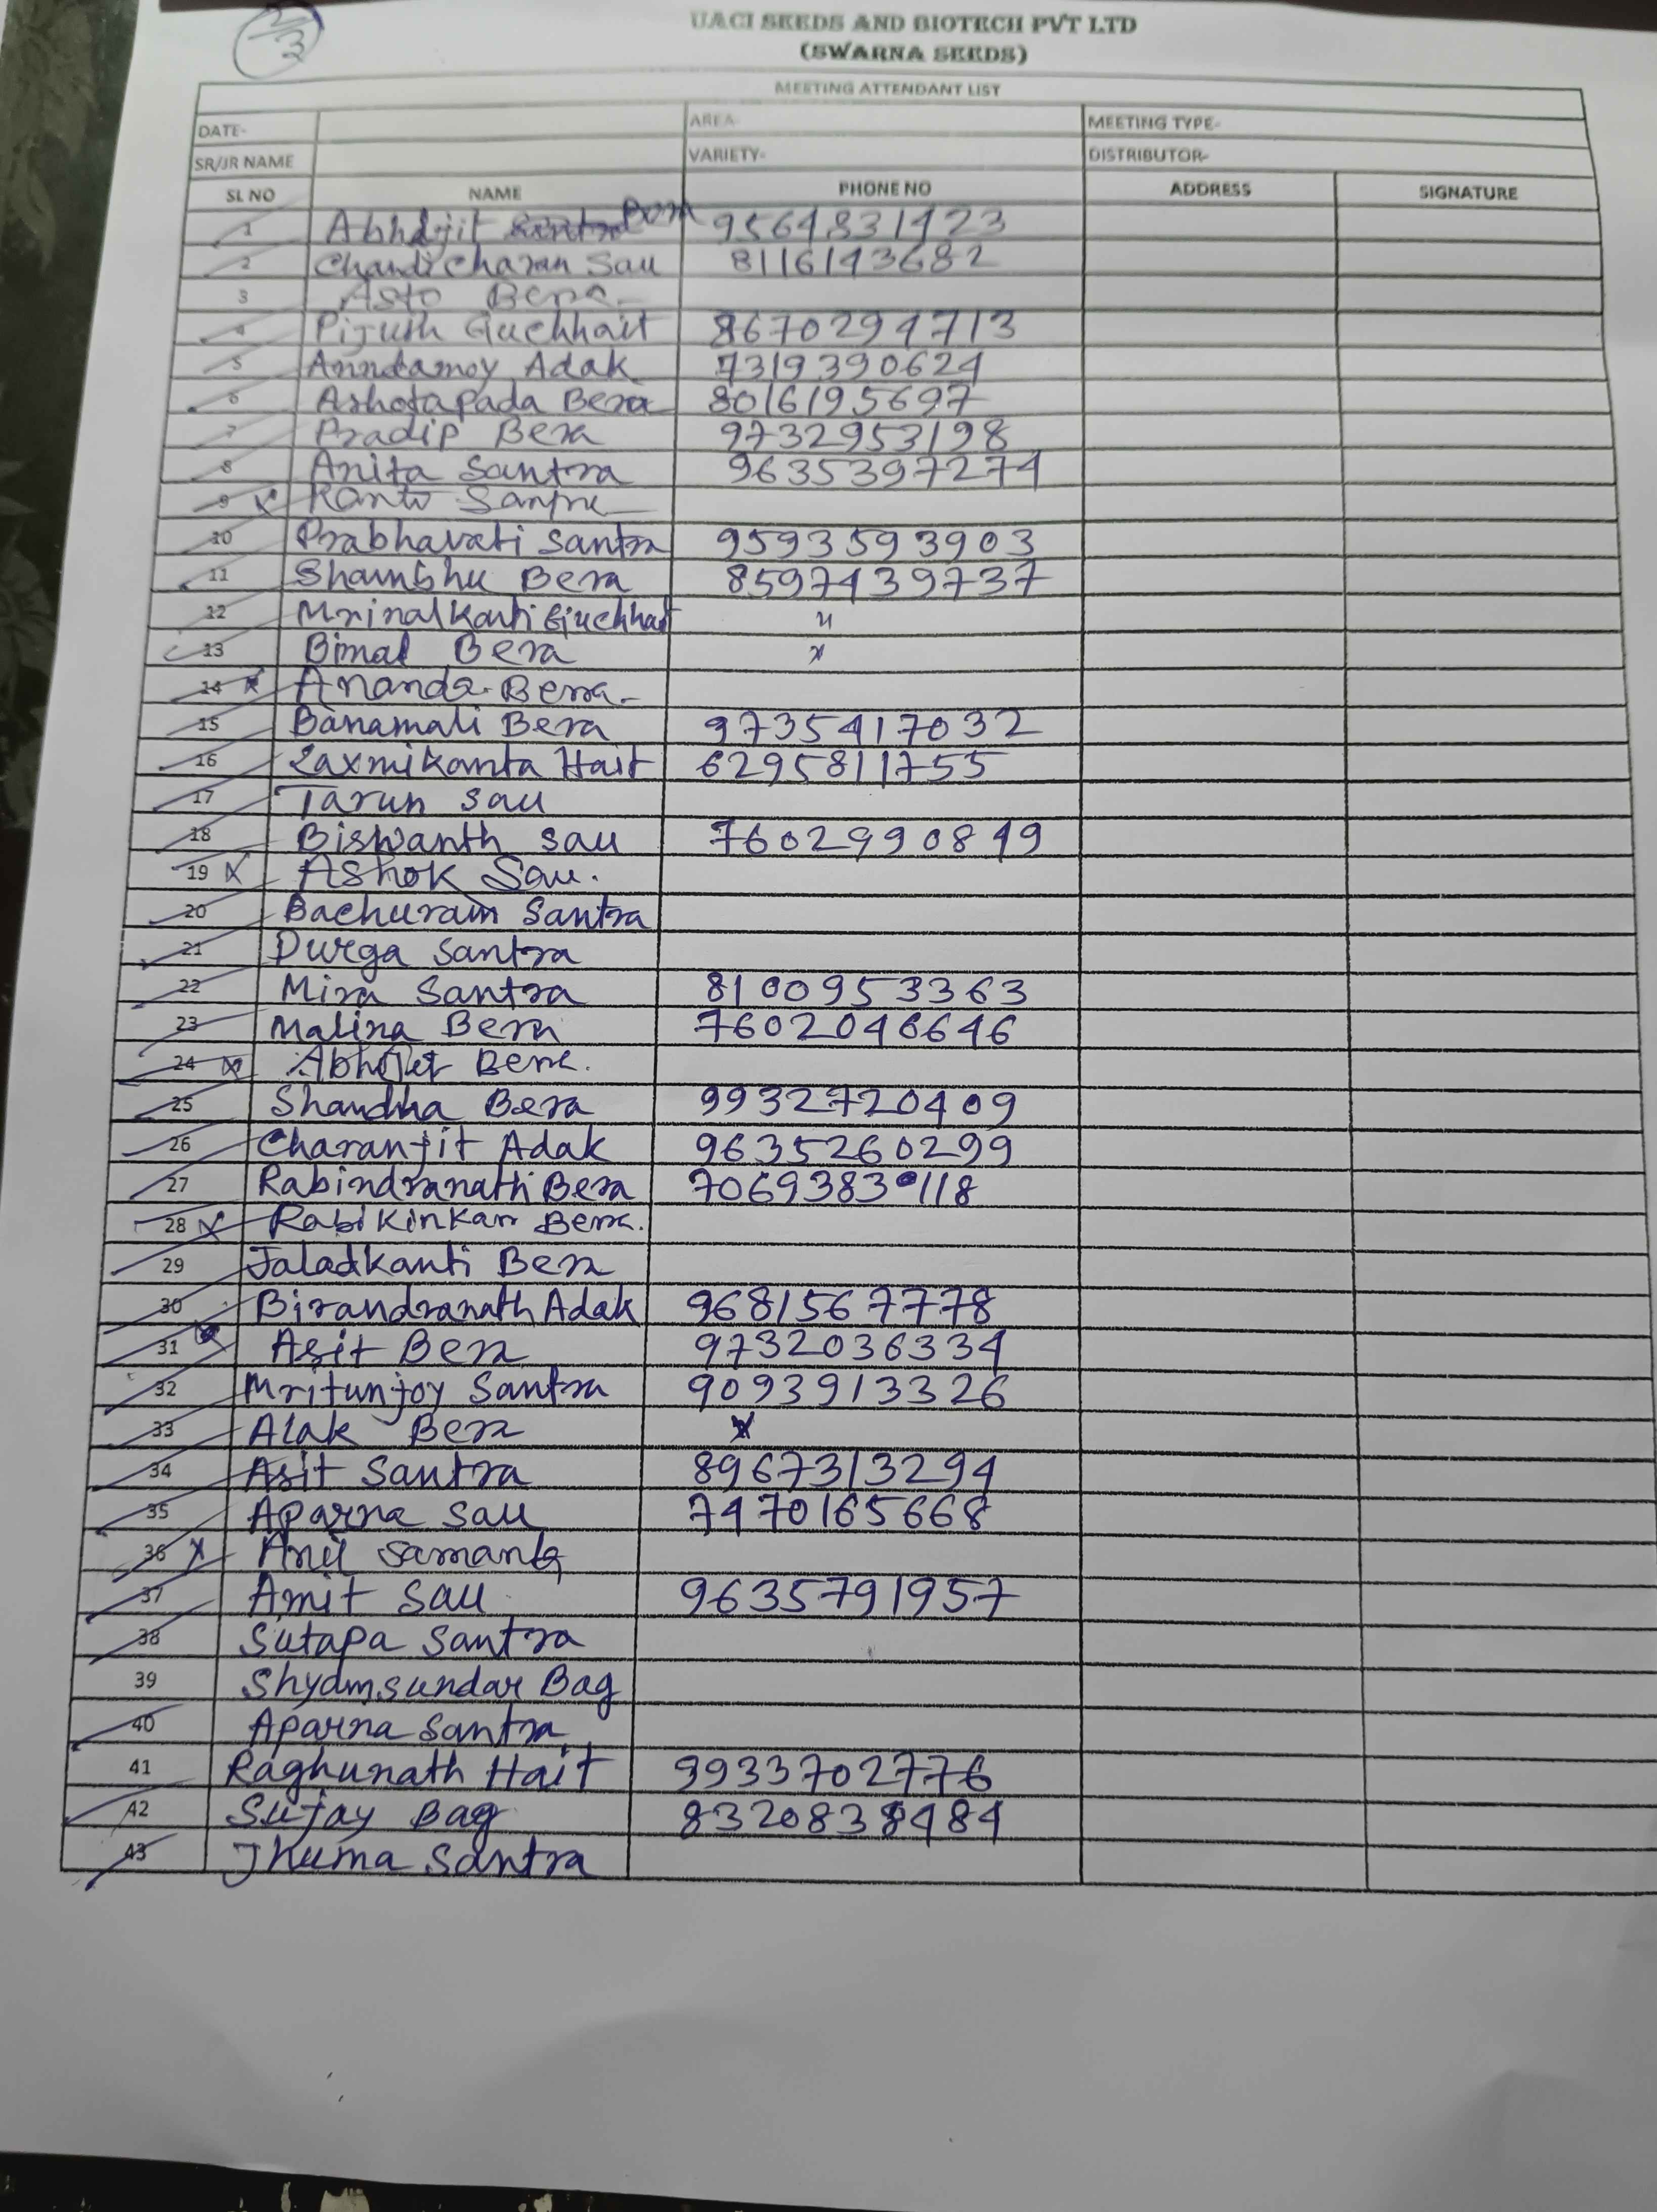 2/3
UACI SEEDS AND BIOTECH PVT LTD
(SWARNA SEEDS)
MEETING ATTENDANT LIST
DATE- AREA- MEETING TYPE-
SR/JR NAME VARIETY- DISTRIBUTOR-
SL NO NAME PHONE NO ADDRESS SIGNATURE
1 Abhijit Bera 9564831423
2 Chandi Charan Sau 8116143682
3 Asto Bera
4 Pijush Guchhait 8670294713
5 Anndamoy Adak 7319390624
6 Ashotapada Bera 8016195697
7 Pradip Bera 9732953198
8 Anita Santra 9635397274
9 x
10 Prabhavati Santra 9593593903
11 Shambhu Bera 8597439737
12 Mrinalkanti Guchhait x
13 Bimal Bera x
14 x Ananda Bera
15 Banamali Bera 9735417032
16 Laxmikanta Hait 6295811755
17 Tarun Sau
18 Biswanth Sau 7602990849
19 x Ashok Sau.
20 Bachuram Santra
21 Durga Santra
22 Mira Santra 8100953363
23 Malina Bera 7602046646
24 x Abhijet Bera.
25 Shandha Bera 9932720409
26 Charanjit Adak 9635260299
27 Rabindranath Bera 7069383 118
28 x Rabikinkar Bera.
29 Jaladkanti Bera
30 Birandranath Adak 9681567778
31 Asit Bera 9732036334
32 Mritunjoy Santra 9093913326
33 Alak Bera x
34 Asit Santra 8967313294
35 Aparna Sau 7470165668
36 x Anil Samanta
37 Amit Sau 9635791957
38 Sutapa Santra
39 Shyamsundar Bag
40 Aparna Santra
41 Raghunath Hait 9933702776
42 Sujay Bag 8320838484
43 Jhuma Santra